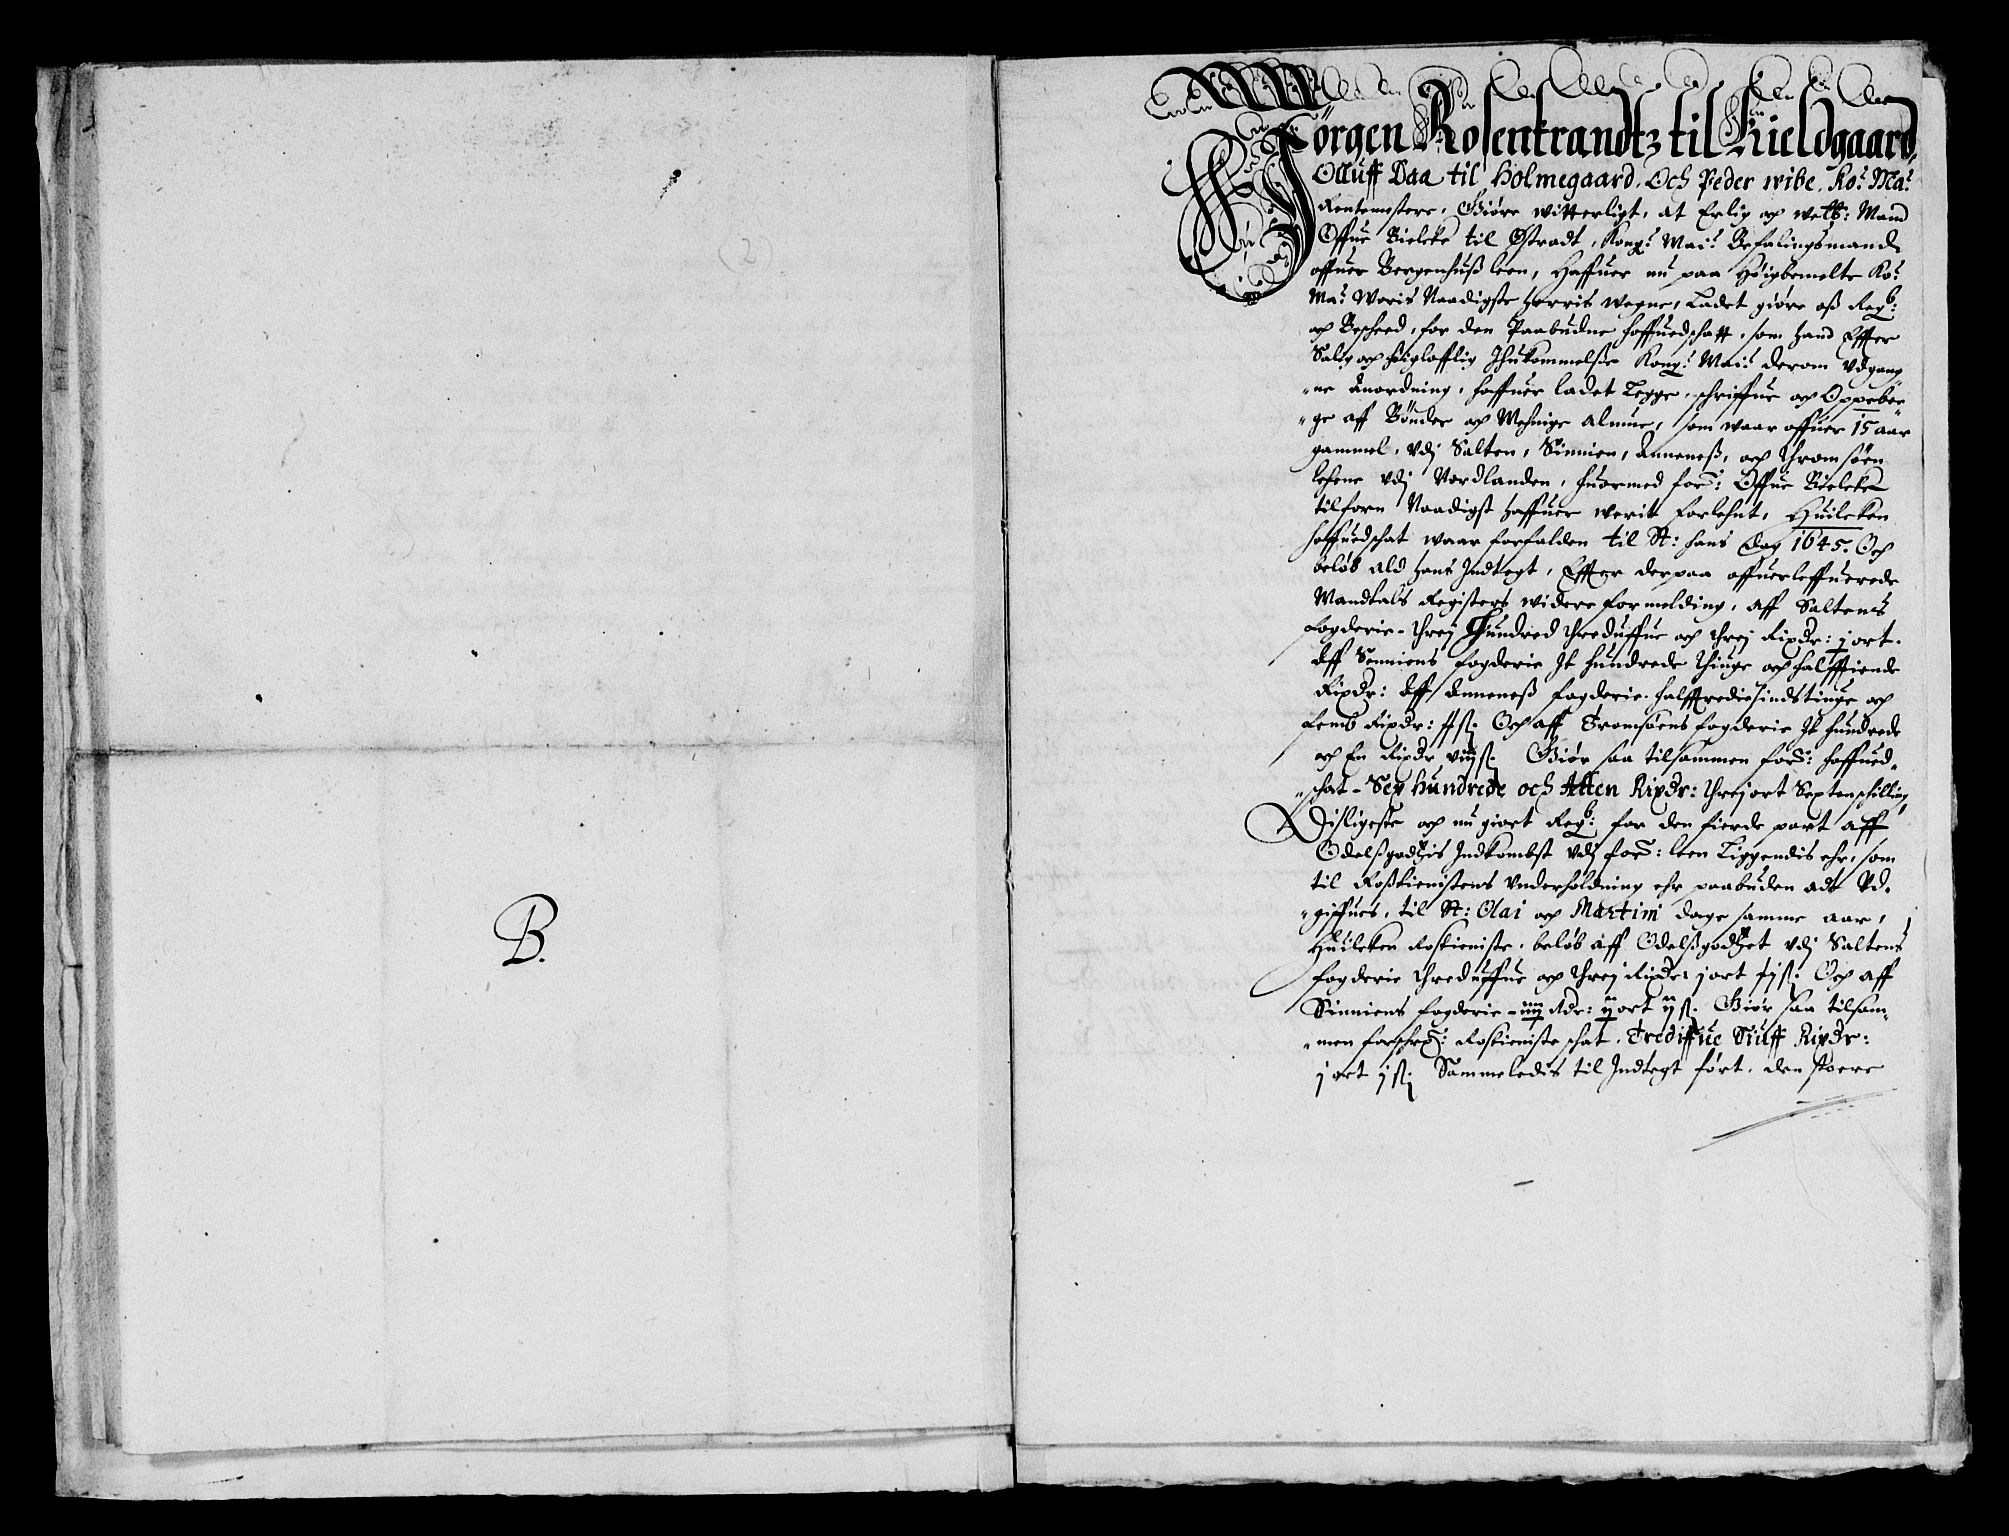 (2)
B.
Jörgen Rosenkrandtz til Kieldgaard,
Olluff Daa til Holmegaard, Och Peder wibe, Ko: Ma:
Rentemestere, Giöre witterligt, at Erlig och welb: Mand
Offue Bielcke til Østradt, Kong: Mai: Befalingsmand
offuer Bergenhuß leen, Haffuer nu paa Höigbemelte Ko:
Ma: Woris Naadigste Herris wegne, Ladet giöre oß Regb:
och Beskeed, for den Paabudne hoffuedschatt, som hand Effter
Salig och höiglofflig Ihukommelße Kong: Mai: derom Vdgang
"ne Anordning, haffuer ladet Legge, schriffue och Oppebær
"ge aff Bönder och Mehnige Almue, som waar offuer 15 aar
gammel, Vdj Salten, Sinnien, Anneneß, och Thromsöen
Lehene vdj Nordlanden, huormed for: Offue Bielcke
tilforn Naadigst haffuer werit forlehnt, Huilcken
hoffuedschat waar forfalden til St: Hans Dag 1645. Och
belöb ald hans Indtegt, Effter derpaa offuerleffuerede
Mandtals Registers widere formelding, Aff Saltens
fogderie - Threj Hundred Threduffue och threj Rixdr: j ort.
Aff Senniens fogderie It hundrede Thiuge och halfftiende
Rixdr: Aff Anneneß fogderie halfftrediesindstiuge och
femb Rixdr: Och aff Tromsöens fogderie It hundrede
och En Rixdr viij ß. Giör saa tilsammen for: hoffued-
"schat - Sex Hundrede och Atten Rixdr: Threj ort Sexten schilling
Disligeste och nu giort Regb: for den fierde part aff
Odelßgodtzis Indkombst vdj for: Leen Liggendis ehr, som
til Roßtienistens Vnderholdning ehr paabuden adt Vd-
"giffues, til St: Olai och Martini dage samme aar,
Huilcken Rostieniste, belöb aff Odelßgodtzet vdj Saltens
fogderie Threduffue och threj Rixdr j ort Och aff
Sinniens fogderie - iiij Rdr: ij ort ij ß. Giör saa tilsam-
"men forschr: Rostieniste schat, Trediffue Siuff Rixdr:
j ort j ß. Sammeledis til Indtegt fört, den stoere